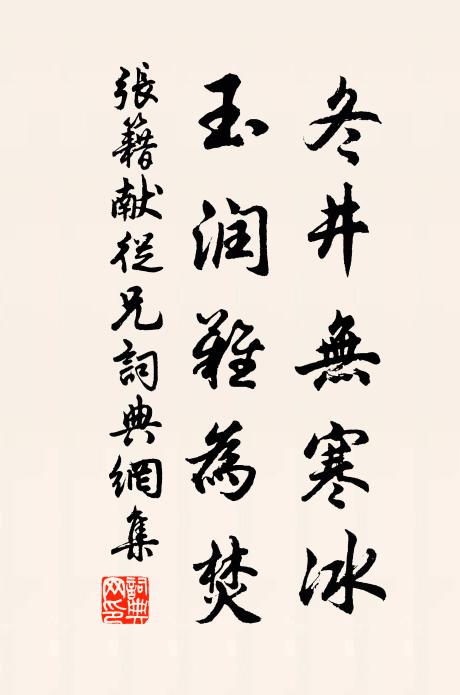 冬井無寒冰
玉润難為焚
張籍献從兄詞典網集
詞典网印